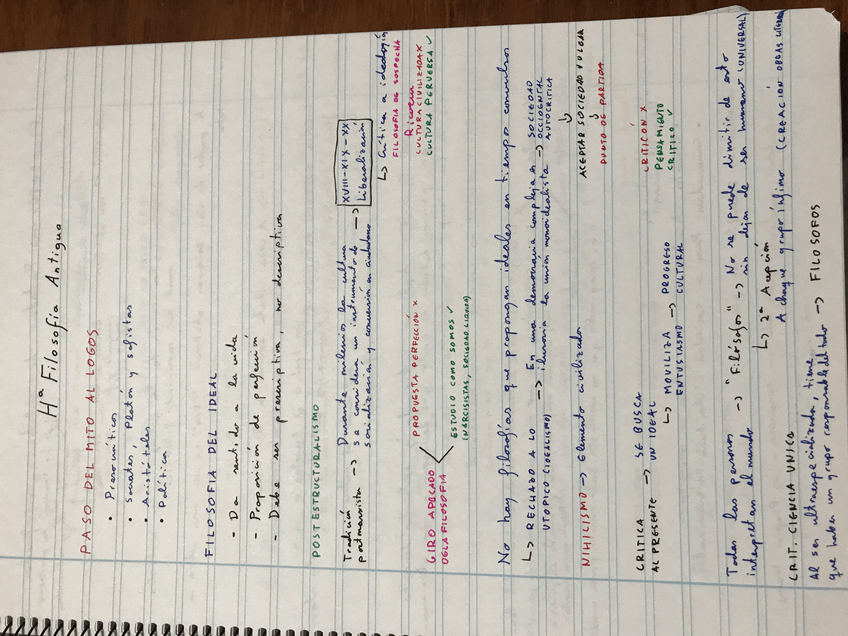 Hª Filosofía Antigua
PASO DEL MITO AL LOGOS
• Presocráticos
• Sócrates, Platón y sofistas
• Aristóteles
• Política
FILOSOFIA DEL IDEAL
- Da sentido a la vida
- Proposición de perfección
- Debe ser prescriptiva, no descriptiva
POSTESTRUCTURALISMO
Tradición postmarxista → Durante milenios la cultura
se considera un instrumento de
socialización y conversión en ciudadano
→ XVIII-XIX-XX
Liberalización
↳ Crítica a ideología
FILOSOFIA DE SOSPECHA
Ricoeur
CULTURA CIVILIZADA X
CULTURA PERVERSA ✓
GIRO APLICADO
DE LA FILOSOFIA
PROPUESTA PERFECCIÓN X
ESTUDIO COMO SOMOS ✓
(NARCISISTAS, SOCIEDAD LIQUIDA)
No hay filosofías que propongan ideales en tiempo convulso
↳ RECHAZO A LO
UTOPICO (IDEALISMO)
→ En una democracia compleja es
ilusoria la unión monoidealista
→ SOCIEDAD
OCCIDENTAL
AUTOCRITICA
↓
ACEPTAR SOCIEDAD VULGAR
↓
PUNTO DE PARTIDA
NIHILISMO → Elemento civilizado
CRITICA
AL PRESENTE → SE BUSCA
UN IDEAL
↳ MOVILIZA
ENTUSIASMO → PROGRESO
CULTURAL
CRITICÓN X
PENSAMIENTO
CRITICO ✓
Todas las personas
interpretan el mundo → "Filósofos" → No se puede dimitir de esto
sin dejar de ser humano (UNIVERSAL)
↳ 2ª Acepción
Achaque grupo ínfimo (CREACIÓN OBRAS
CRIT. CIENCIA UNICA
Al ser ultraespecializada, tiene
que haber un grupo responsable del todo → FILOSOFOS